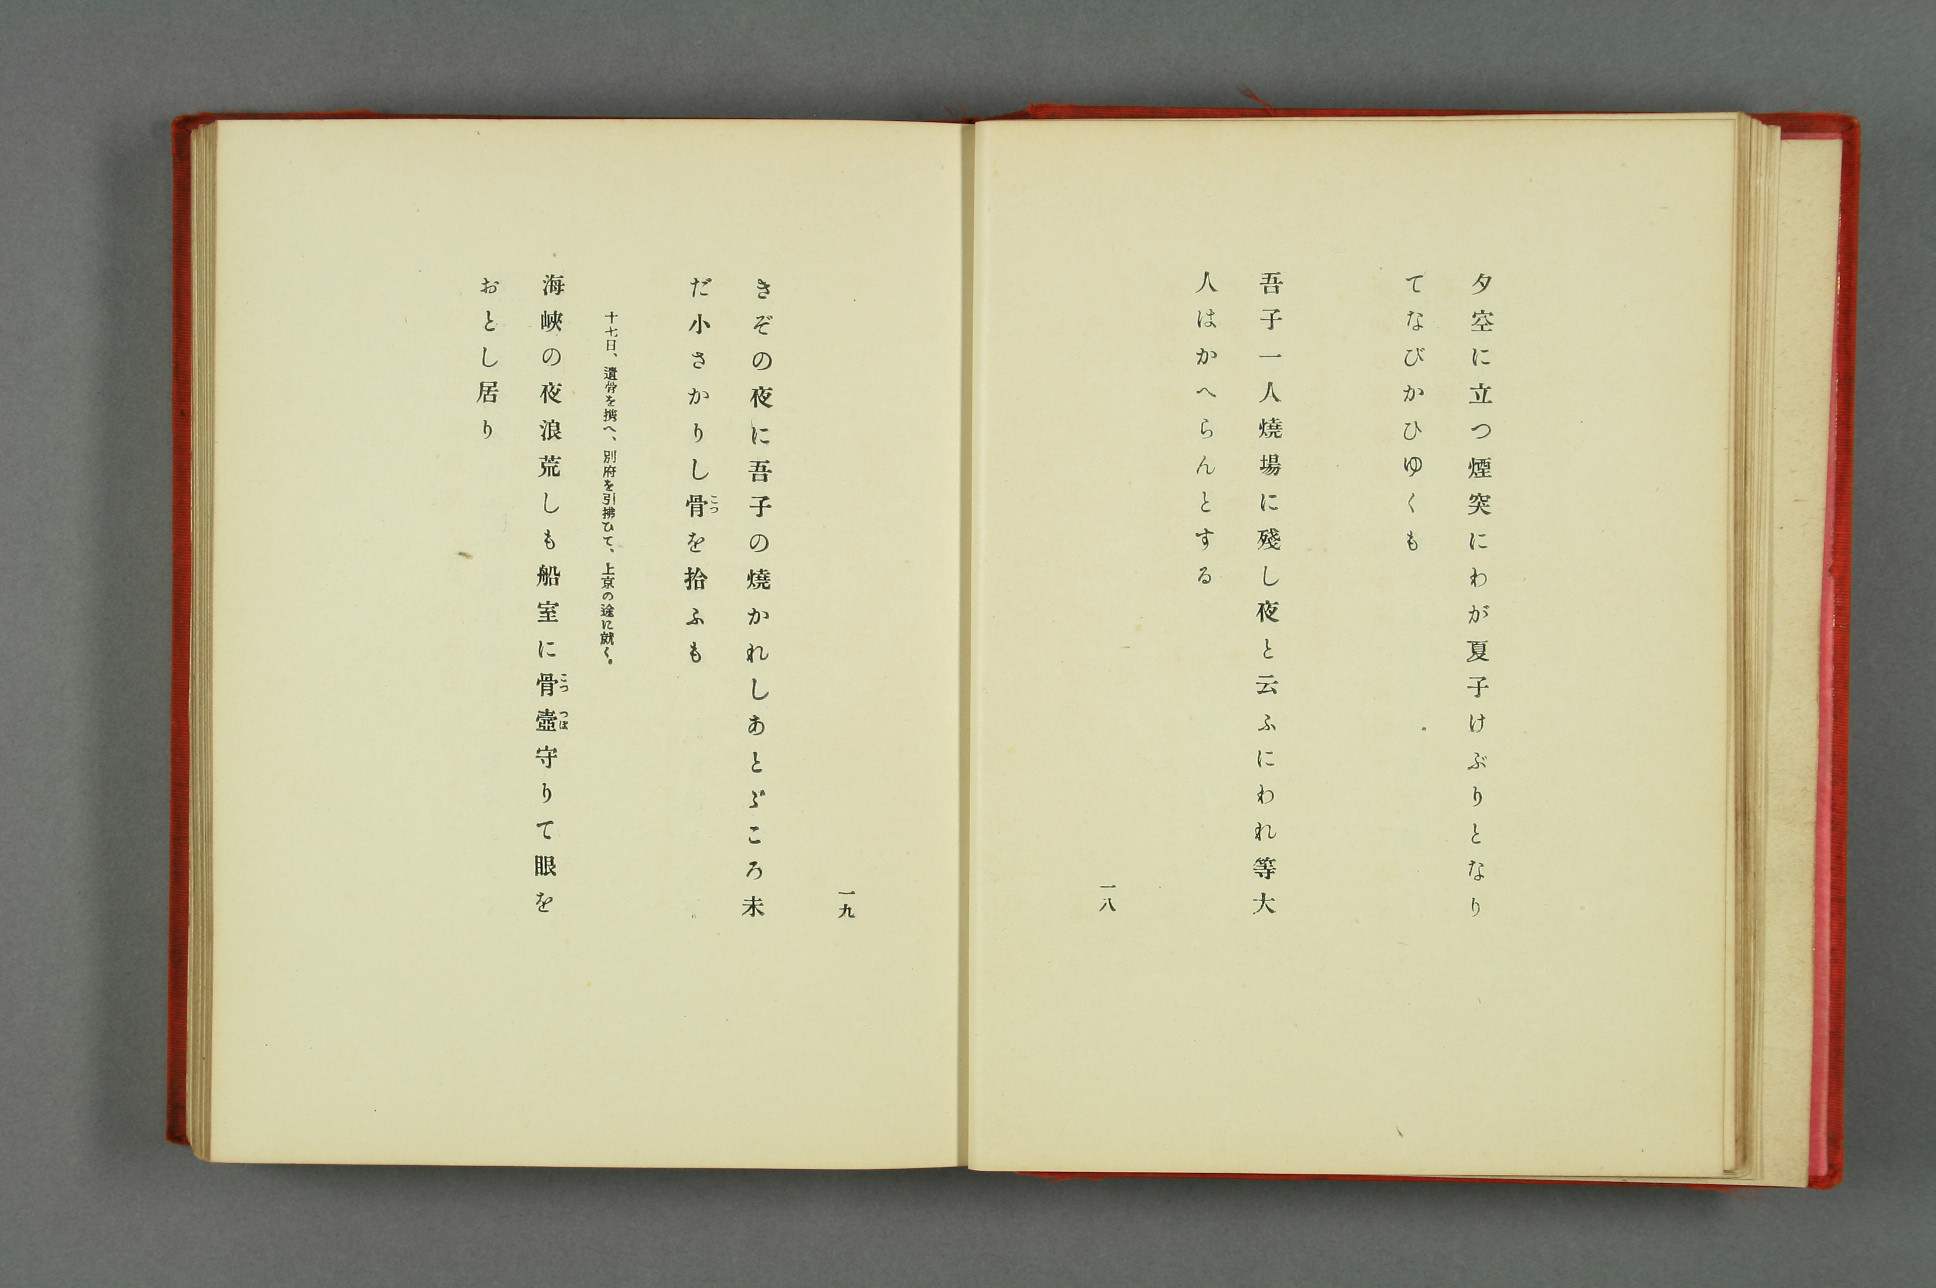 夕空に立つ煙突にわが夏子けぶりとなり
てなびかひゆくも
吾子一人燒場に殘し夜と云ふにわれ等大
人はかへらんとする
一八
一九
きぞの夜に吾子の燒かれしあとゞころ未
だ小さかりし骨を拾ふも
こつ
十七日、遺骨を携へ、別府を引拂ひて、上京の途に就く。
海峽の夜浪荒しも船室に骨壺守りて眼を
こつつぼ
おとし居り